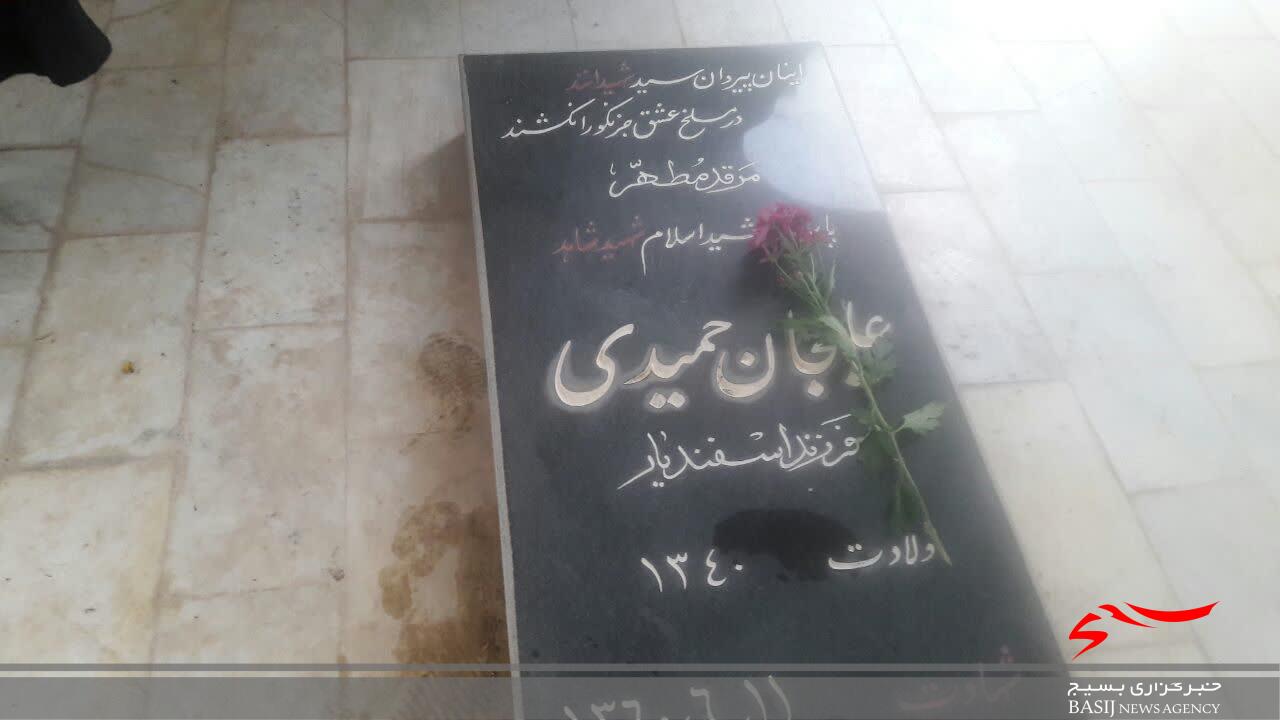 اینان پیروان سید شهیدانند
در مسلخ عشق جز نکو را نکشند
مرقد مطهّر
شهید اسلام شهید شاهد
جان حمیدی
فرزند اسفندیار
ولادت ۱۳۴۰
شهادت ۱۱ ۶ ۱۳۶۰
خبرگزاری بسیج
BASIJ NEWS AGENCY